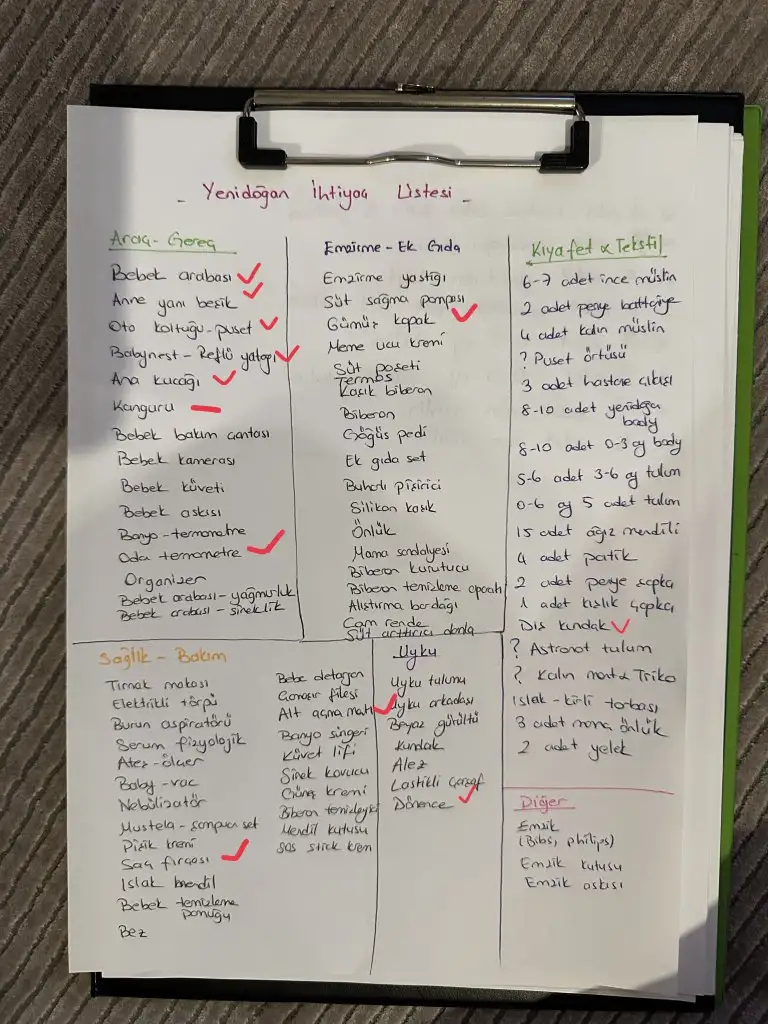 - Yenidoğan İhtiyaç Listesi -
Araç-Gereç
Bebek arabası
Anne yanı beşik
Oto koltuğu-puset
Babynest-Reflü yatağı
Ana kucağı
Kanguru
Bebek bakım çantası
Bebek kamerası
Bebek küveti
Bebek askısı
Banyo-termometre
Oda termometre
Organizer
Bebek arabası-yağmurluk
Bebek arabası-sineklik
Emzirme-Ek Gıda
Emzirme yastığı
Süt sağma pompası
Gümüş kapak
Meme ucu kremi
Süt poşeti
Termos
Kaşık biberon
Biberon
Göğüs pedi
Ek gıda set
Buharlı pişirici
Silikon kaşık
Önlük
Mama sandalyesi
Biberon kurutucu
Biberon temizleme aparatı
Alıştırma bardağı
Cam rende
Süt arttırıcı damla
Kıyafet & Tekstil
6-7 adet ince müslin
2 adet penye battaniye
4 adet kalın müslin
? Puset örtüsü
3 adet hastane çıkışı
8-10 adet yenidoğan
body
8-10 adet 0-3 ay body
5-6 adet 3-6 ay tulum
0-6 ay 5 adet tulum
15 adet ağız mendili
4 adet patik
2 adet penye şapka
1 adet kışlık şapka
Dış kundak
? Astronot tulum
? Kalın mont & Triko
Islak-kirli torbası
3 adet mama önlük
2 adet yelek
Sağlık-Bakım
Tırnak makası
Elektrikli törpü
Burun aspiratörü
Serum fizyolojik
Ateş-ölçer
Baby-vac
Nebülizatör
Mustela-şampuan set
Pişik kremi
Saç fırçası
Islak mendil
Bebek temizleme
pamuğu
Bez
Bebe detarjan
Çamaşır filesi
Alt açma matı
Banyo süngeri
Küvet lifi
Sinek kovucu
Güneş kremi
Biberon temizleyici
Mendil kutusu
SOS stick krem
Uyku
Uyku tulumu
Uyku arkadaşı
Beyaz gürültü
Kundak
Alez
Lastikli çarşaf
Dönence
Diğer
Emzik
(Bibs, philips)
Emzik kutusu
Emzik askısı